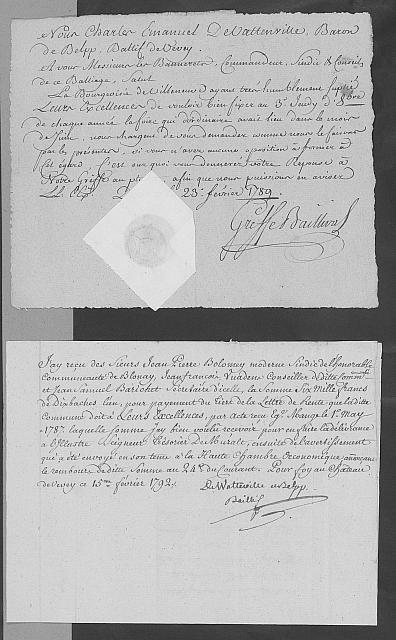 Nous Charles Emanuel DeWattenville, Baron
de Belpp, Ballif de Vevey.
A vous Messieurs les Bannerets, Commandeur, Sindic & Conseils
de ce Balliage, Salut
La Bourgeoisie de Villeneuve ayant très humblement suplié
Leurs Excellences de vouloir bien fixer au 3e Jeudy d'8bre
de chaque année la foire qui d'ordinaire avait lieu dans le mois
de nous chargent de vous demander comme nous le faisons
par les présentes, si vous n'avez aucune oposition à former à
cet égard. C'est sur quoi vous donnerez votre Réponse à
Notre Greffe au plus afin que nous puissions en aviser
LL. EEx. 23e février 1789.
Greffe Baillival
J'ay reçu des Sieurs Jean Pierre Bolomey moderne Sindic de l'honorable
Communauté de Blonay, Jean francois Vuadens Conseiller de ditte Commté
et Jean Samuel Barichet Sécrétaire d'icelle, la Somme Six Mille francs
de Dix baches l'un, pour payement du tiers de la Lettre de Rente que laditte
Commune doit à Leurs Excellences, par Acte reçu Eg. Mange le 1er May
178 laquelle somme j'ay bien voulu recevoir pour en faire la délivrance
à l'Illustre Seigneur Thésorier De Muralt, ensuite de l'avertissement
qui a été envoyé en son tems à la Haute Chambre Oeconomique annonçant
le rembours de ditte Somme au 24e du Courant. Pour foy au Château
de Vevey ce 15me février 1792.
De Watteville de Belpp.
Baillif